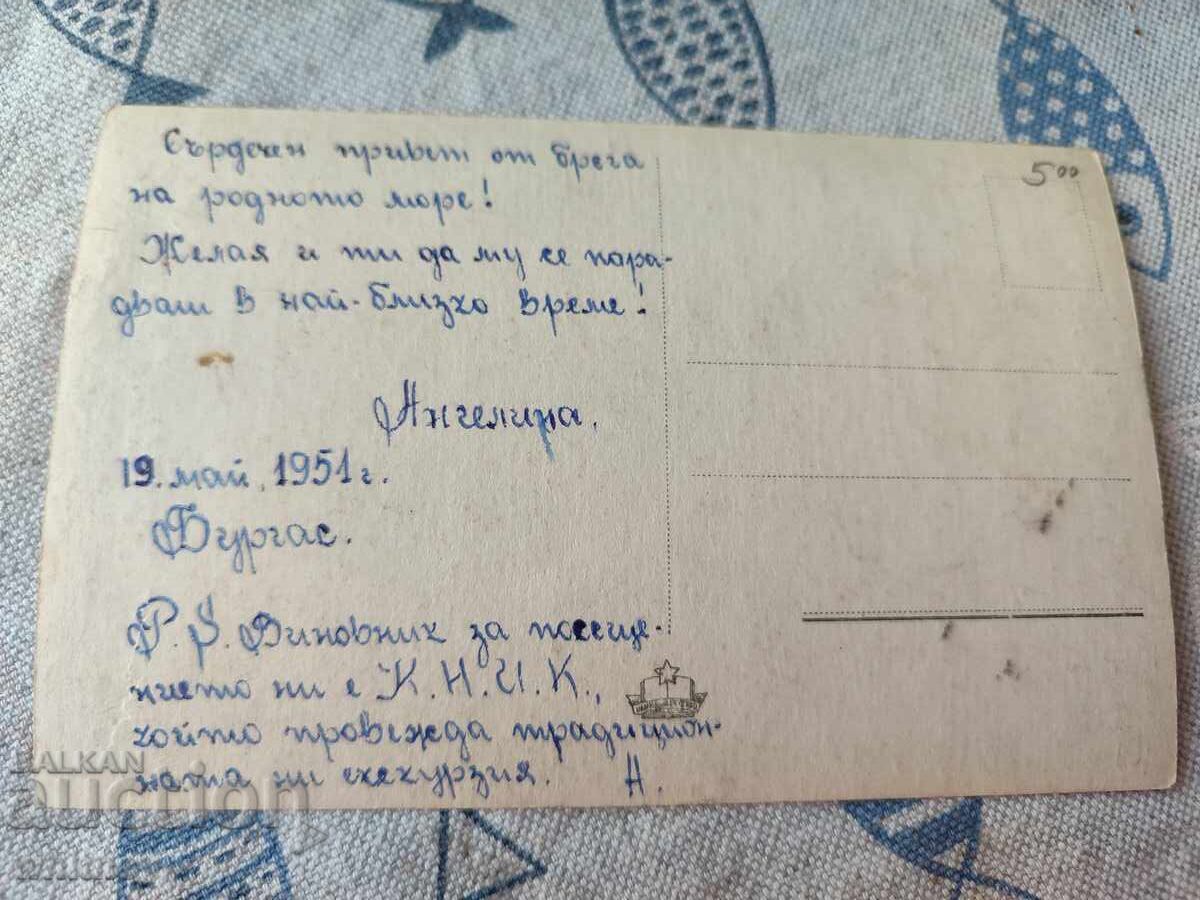 Сърдечен привет от брега
на родното море!
Желая и ти да му се пора-
дваш в най-близко време!
Ангелина.
19. май. 1951 г.
Бургас.
P. S. Виновник за посеще-
нието ни е К. Н. И. К.,
който провежда традицион-
ната ни екскурзия. А.
5 00
BALKAN
auction